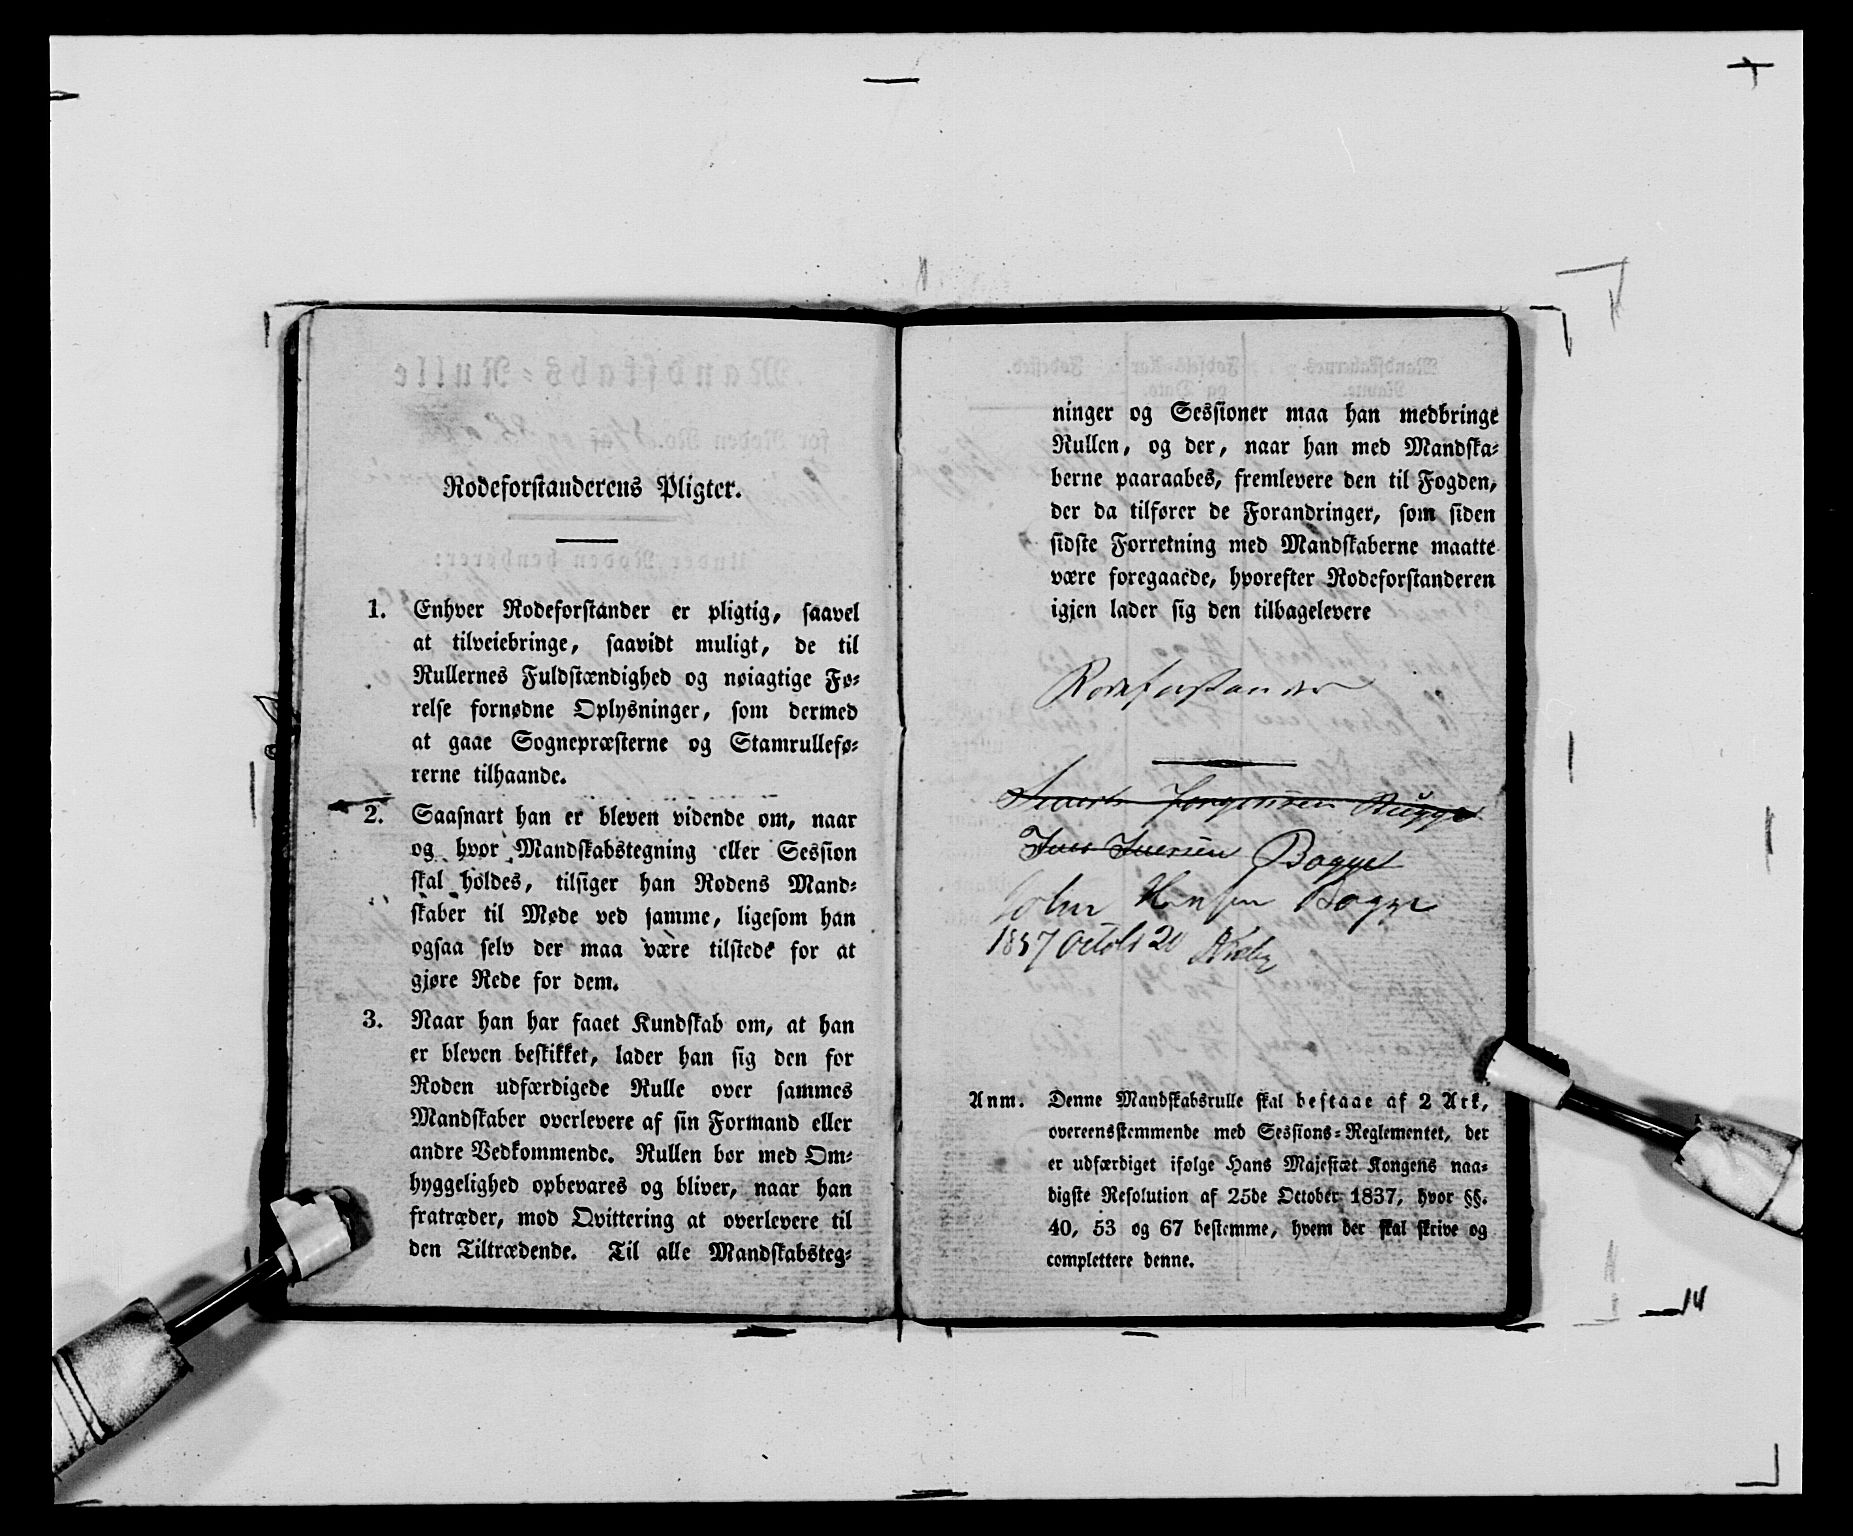 Rodeforstanderens Pligter.
1. Enhver Rodeforstander er pligtig, saavel
at tilveiebringe, saavidt muligt, de til
Rullernes Fuldstændighed og nøiagtige Fø-
relse fornødne Oplysninger, som dermed
at gaae Sognepræsterne og Stamrullefø-
rerne tilhaande.
2. Saasnart han er bleven vidende om, naar
og hvor Mandskabstegning eller Session
skal holdes, tilsiger han Rodens Mand-
skaber til Møde ved samme, ligesom han
ogsaa selv der maa være tilstede for at
gjøre Rede for dem.
3. Naar han har faaet Kundskab om, at han
er bleven beskikket, lader han sig den for
Roden udfærdigede Rulle over sammes
Mandskaber overlevere af sin Formand eller
andre Vedkommende. Rullen bør med Om-
hyggelighed opbevares og bliver, naar han
fratræder, mod Qvittering at overlevere til
den Tiltrædende. Til alle Mandskabsteg-
ninger og Sessioner maa han medbringe
Rullen, og der, naar han med Mandska-
berne paaraabes, fremlevere den til Fogden,
der da tilfører de Forandringer, som siden
sidste Forretning med Mandskaberne maatte
være foregaaede, hvorefter Rodeforstanderen
igjen lader sig den tilbagelevere
Rodeforstander
Jørgensen Bugge
Iversen Bogge
Hansen Bogge
1857 Octob 20
Anm. Denne Mandskabsrulle skal bestaae af 2 Ark,
overeensstemmende med Sessions-Reglementet, der
er udfærdiget ifølge Hans Majestæt Kongens naa-
digste Resolution af 25de October 1837, hvor §§.
40, 53 og 67 bestemme, hvem der skal skrive og
complettere denne.
14